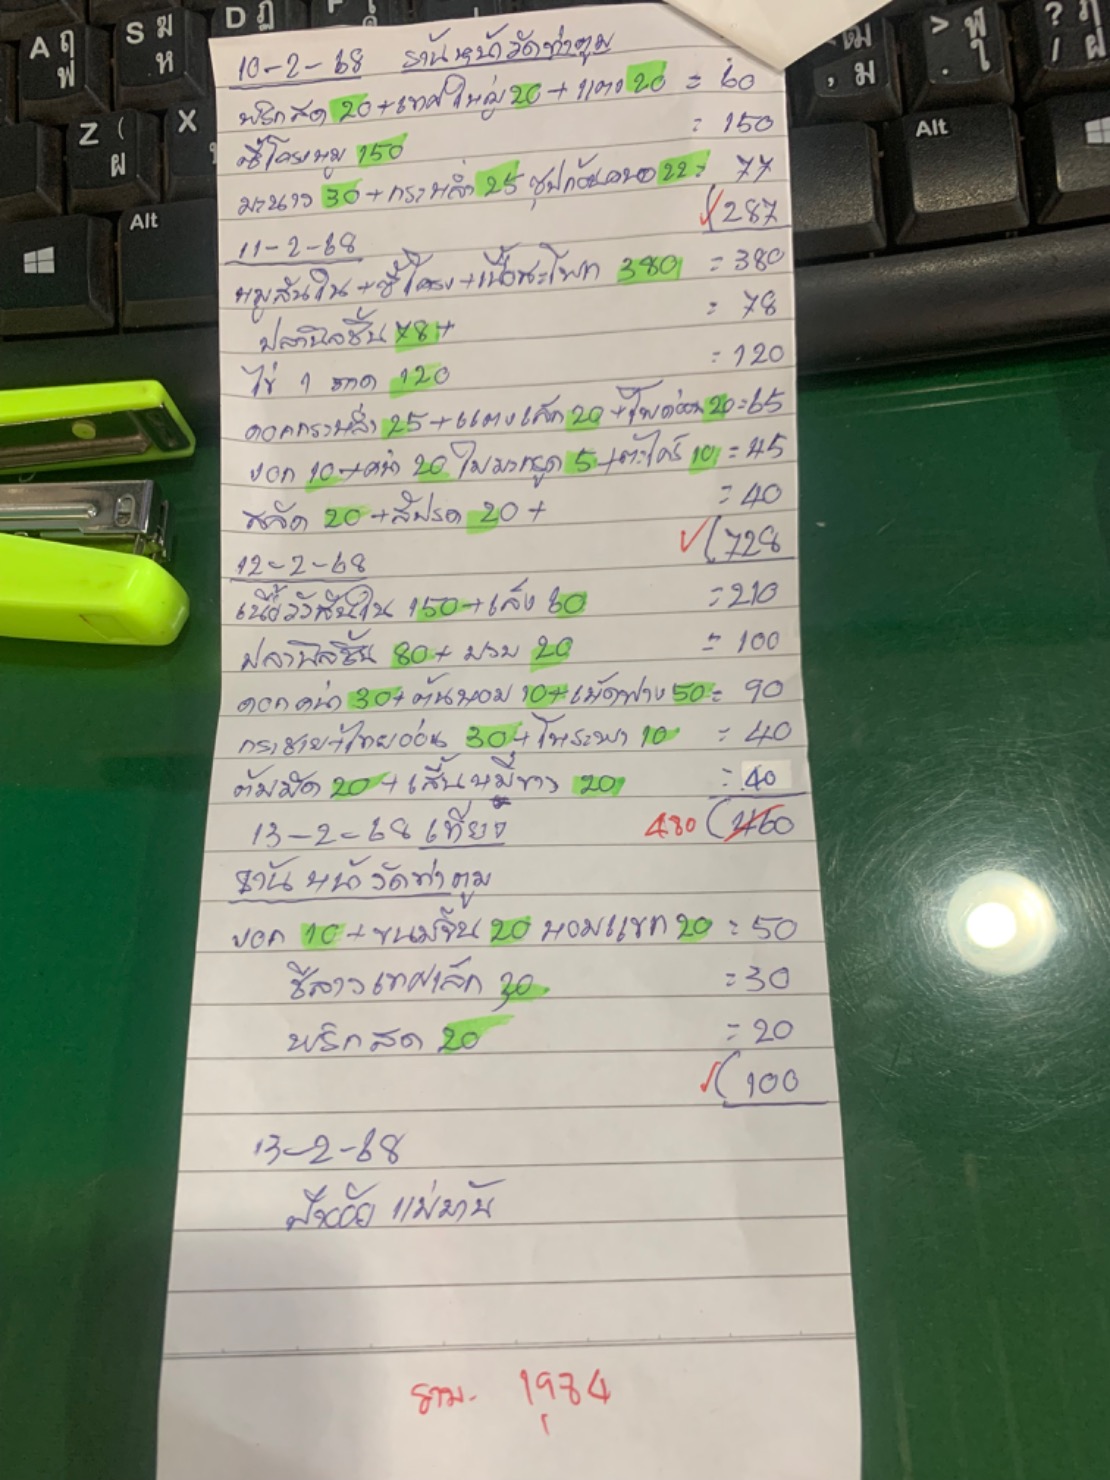 A ฤ ฟ
S ฆ ห
D ฏ
F
Z ( ผ
X
Alt
Alt
, ม
> ฬ . ใ
? ฦ / ฝ
10-2-68 ร้านหน้าวัดท่าตูม
พริกสด 20+เทศใหญ่ 20+แตง 20 = 60
ซี่โครงหมู 150 = 150
มะนาว 30+กระหล่ำ 25 ซุปก้อนคนอ 22= 77
287
11-2-68
หมูสันใน+ซี่โครง+เนื้อสะโพก 380 = 380
ปลานิลชิ้น 78+ = 78
ไข่ 1 ถาด 120 = 120
ดอกกระหล่ำ 25+แตงเล็ก 20+ 20=65
งอก 10+คน้า 20 ใบมะกรูด 5+ตะไคร้ 10 = 45
สลัด 20+สัปรด 20+ = 40
728
12-2-68
เนื้อวัวสันใน 150+เล้ง 60 = 210
ปลานิลชิ้น 80+บวบ 20 = 100
ดอกคน้า 30+ต้นหอม 10+เห็ดฟาง 50= 90
กระชาย+ไทยอ่อน 30+โหระพา 10 = 40
ต้มมัด 20+เส้นหมี่ขาว 20 = 40
13-2-68 เที่ยง 480 460
ร้านหน้าวัดท่าตูม
งอก 10+ขนมจีน 20 หอมแขก 20 = 50
ชีลาวเทศเล็ก 30 = 30
พริกสด 20 = 20
100
13-2-68
แม่มาน
รวม. 1984